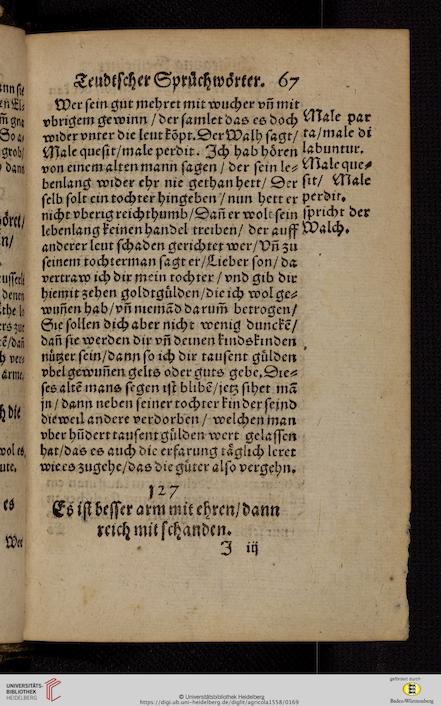 Teudtscher Sprüchwörter. 67
Wer sein gut mehret mit wucher vñ mit
vbrigem gewinn / der samlet das es doch
wider vnter die leut kōpt. Der Walh sagt /
Male quesit / male perdit. Ich hab hören
von einem alten mann sagen / der sein le-
benlang wider ehr nie gethan hett / Der
selb solt ein tochter hingeben / nun hett er
nicht vberig reichthumb / Dañ er wolt sein
lebenlang keinen handel treiben / der auff
anderer leut schaden gerichtet wer / Vñ zu
seinem tochterman sagt er / Lieber son / da
vertraw ich dir mein tochter / vnd gib dir
hiemit zehen goldtgülden / die ich wol ge-
wuñen hab / vñ niemād darum̃ betrogen /
Sie sollen dich aber nicht wenig dunckē /
dañ sie werden dir vñ deinen kindskinden
nützer sein / dann so ich dir tausent gülden
vbel gewuñen gelts oder guts gebe. Die-
ses altē mans segen ist blibē / jetz sihet mā
jn / dann neben seiner tochter kinder seind
dieweil andere verdorben / welchen man
vber hūdert tausent gülden wert gelassen
hat / das es auch die erfarung täglich leret
wie es zugehe / das die güter also vergehn.
Male par
ta / male di
labuntur.
Male que-
sit / Male
perdit.
spricht der
Walch.
127
Es ist besser arm mit ehren / dann
reich mit schanden.
J iij
UNIVERSITÄTS-
BIBLIOTHEK
HEIDELBERG
© Universitätsbibliothek Heidelberg
https://digi.ub.uni-heidelberg.de/diglit/agricola1558/0169
gefördert durch
Baden-Württemberg